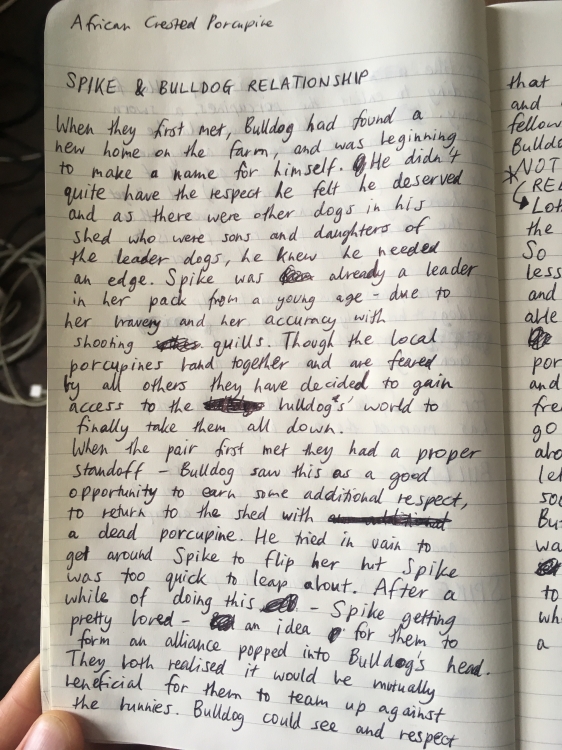 African Crested Porcupine
SPIKE & BULLDOG RELATIONSHIP
When they first met, Bulldog had found a
new home on the farm, and was beginning
to make a name for himself. He didn't
quite have the respect he felt he deserved
and as there were other dogs in his
shed who were sons and daughters of
the leader dogs, he knew he needed
an edge. Spike was already a leader
in her pack from a young age - due to
her bravery and her accuracy with
shooting quills. Though the local
porcupines band together and are feared
by all others they have decided to gain
access to the bulldog's' world to
finally take them all down.
When the pair first met they had a proper
standoff - Bulldog saw this as a good
opportunity to earn some additional respect,
to return to the shed with
a dead porcupine. He tried in vain to
get around Spike to flip her but Spike
was too quick to leap about. After a
while of doing this - Spike getting
pretty bored - an idea for them to
form an alliance popped into Bulldog's head.
They both realised it would be mutually
beneficial for them to team up against
the bunnies. Bulldog could see and respect
that
and
fellow
Bulldo
*NOT
REL
Lot
the
So
less
and
able
por
and
fre
go
abo
let
soo
Bu
wa
to
wh
a